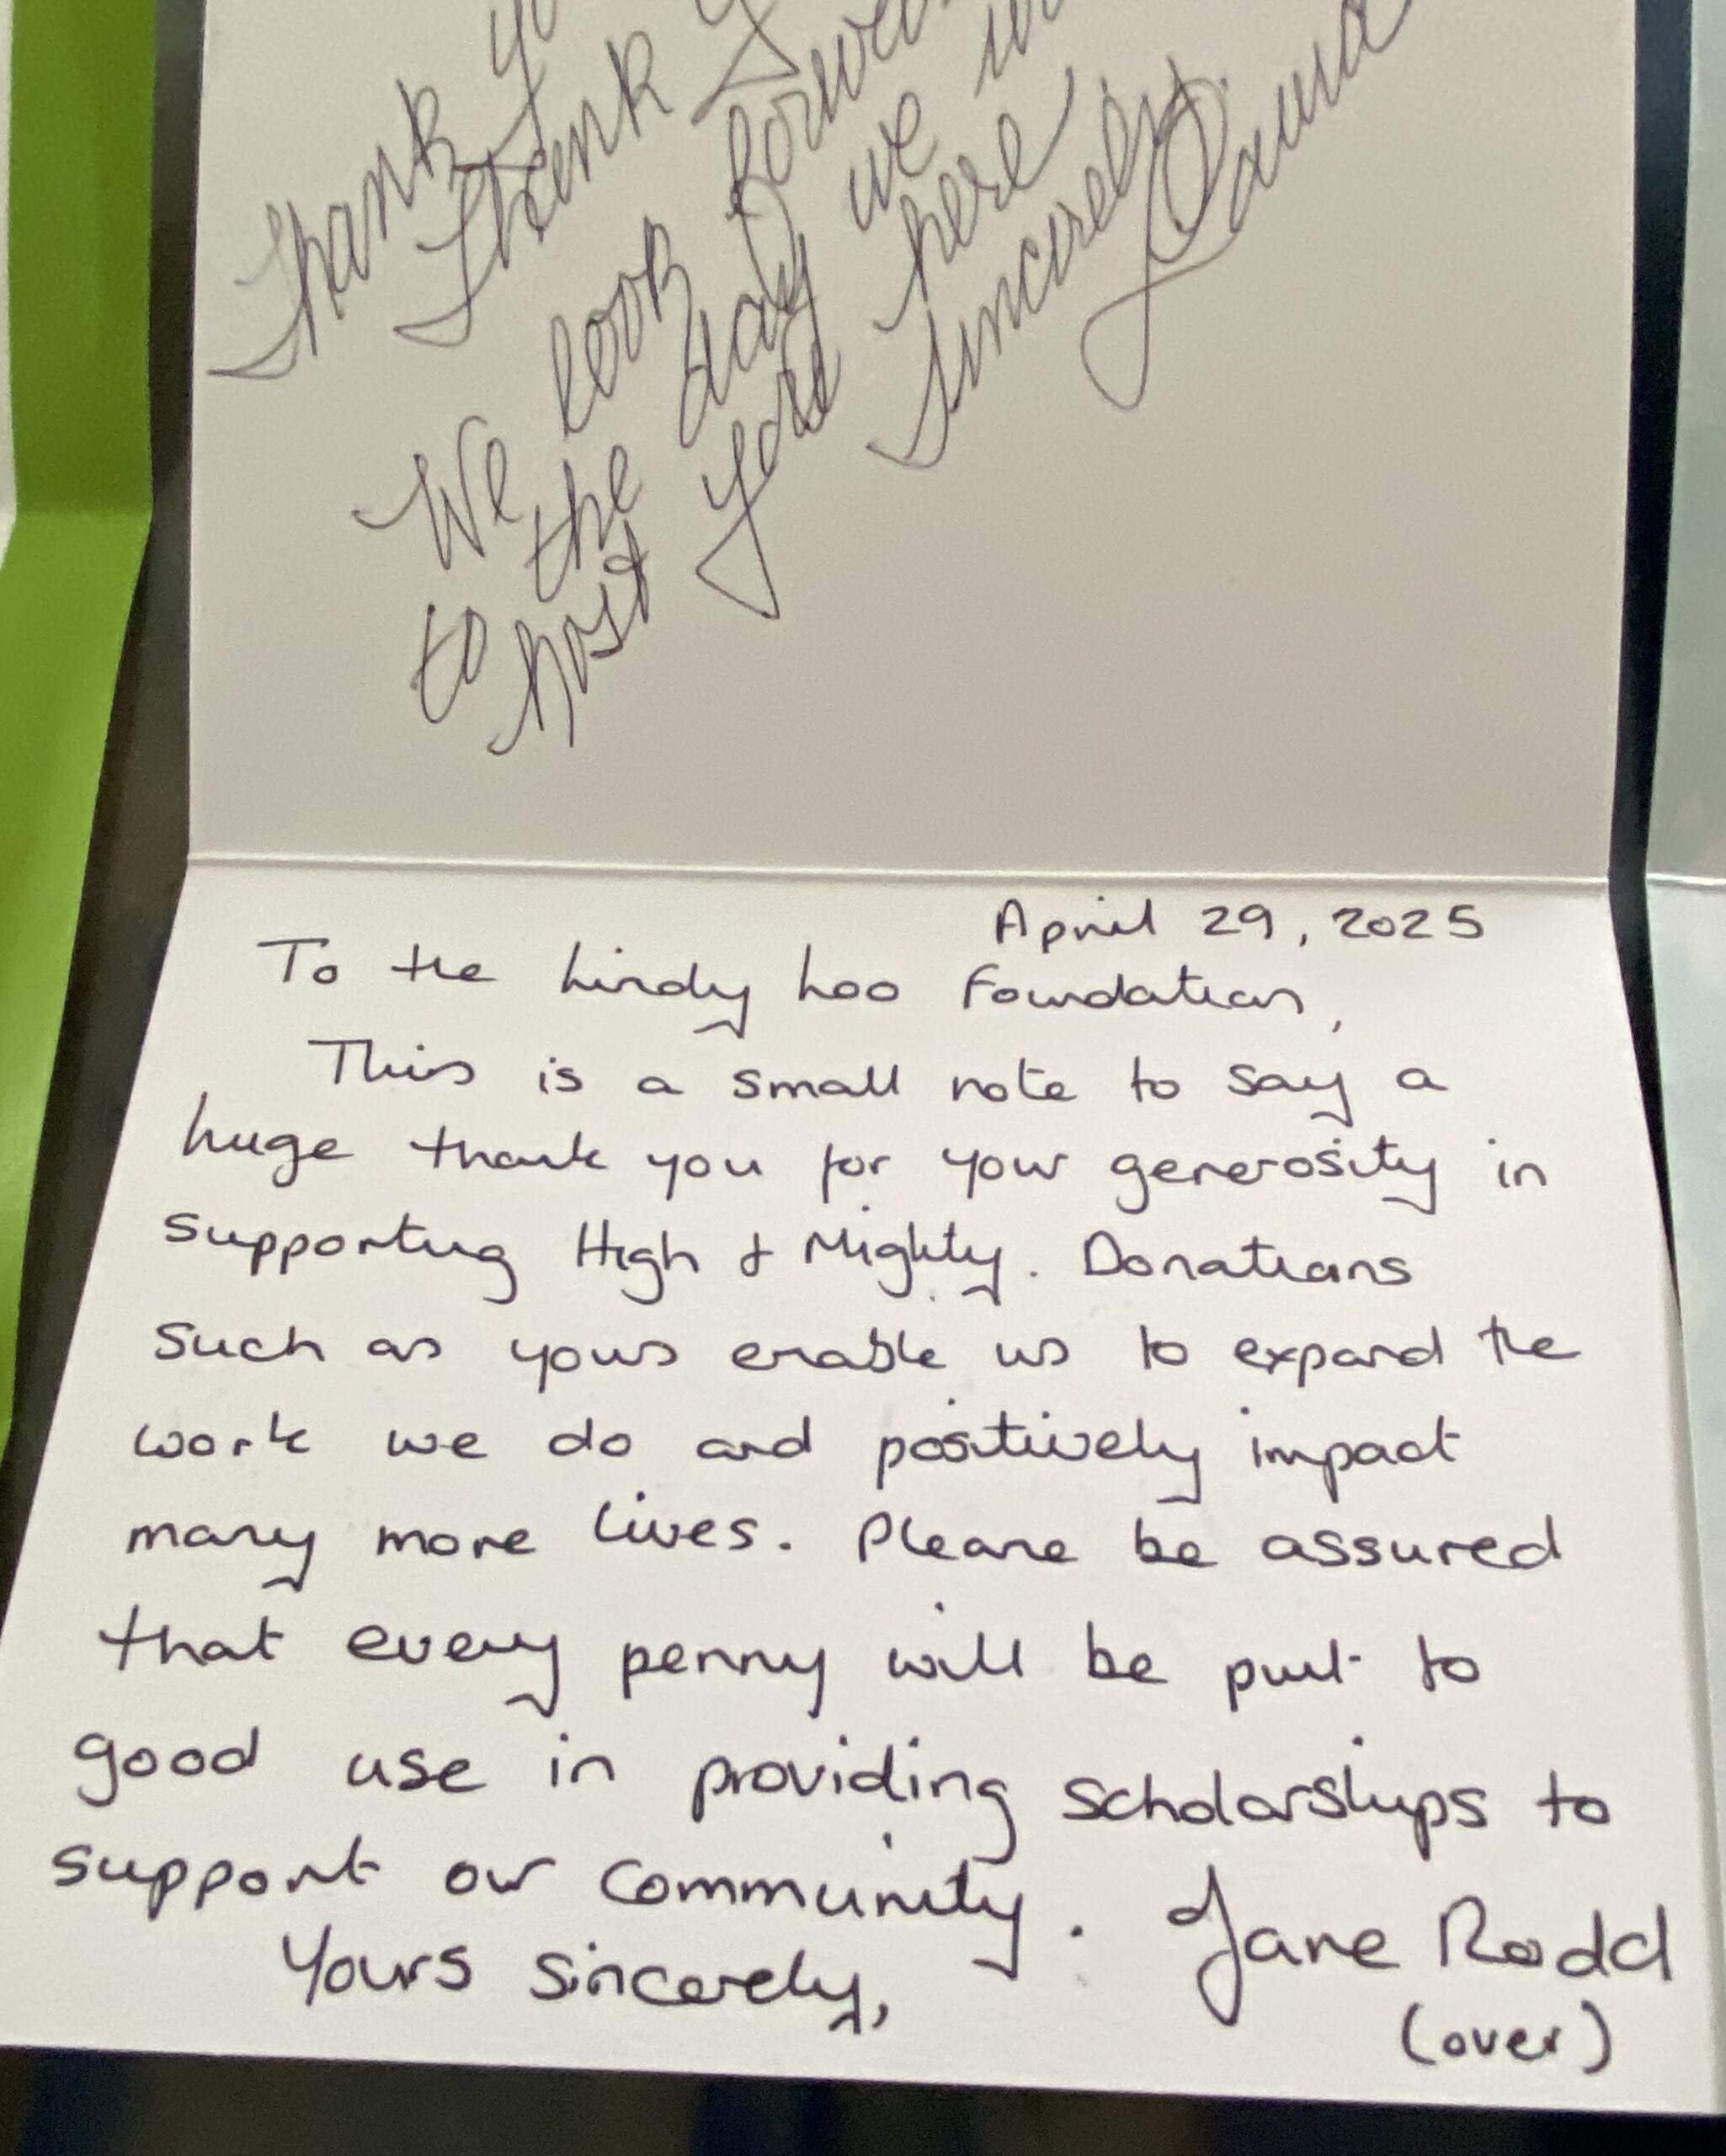 Thank
Thank
We look
to the day we
host you here
Sincerely,
Laura
April 29, 2025
To the Lindy Loo Foundation,
This is a small note to say a
huge thank you for your generosity in
supporting High & Mighty. Donations
such as yours enable us to expand the
work we do and positively impact
many more lives. Please be assured
that every penny will be put to
good use in providing scholarships to
support our community. Jane Rodd
Yours sincerely,
(over)